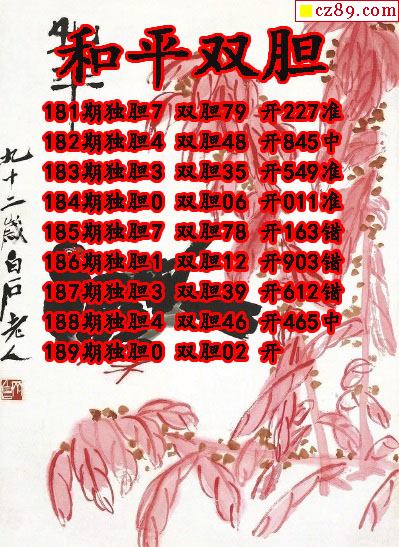 cz89.com
和平双胆
181期独胆7 双胆79 开227准
182期独胆4 双胆48 开845中
183期独胆3 双胆35 开549准
184期独胆0 双胆06 开011准
185期独胆7 双胆78 开163错
186期独胆1 双胆12 开903错
187期独胆3 双胆39 开612错
188期独胆4 双胆46 开465中
189期独胆0 双胆02 开
九十二岁白石老人